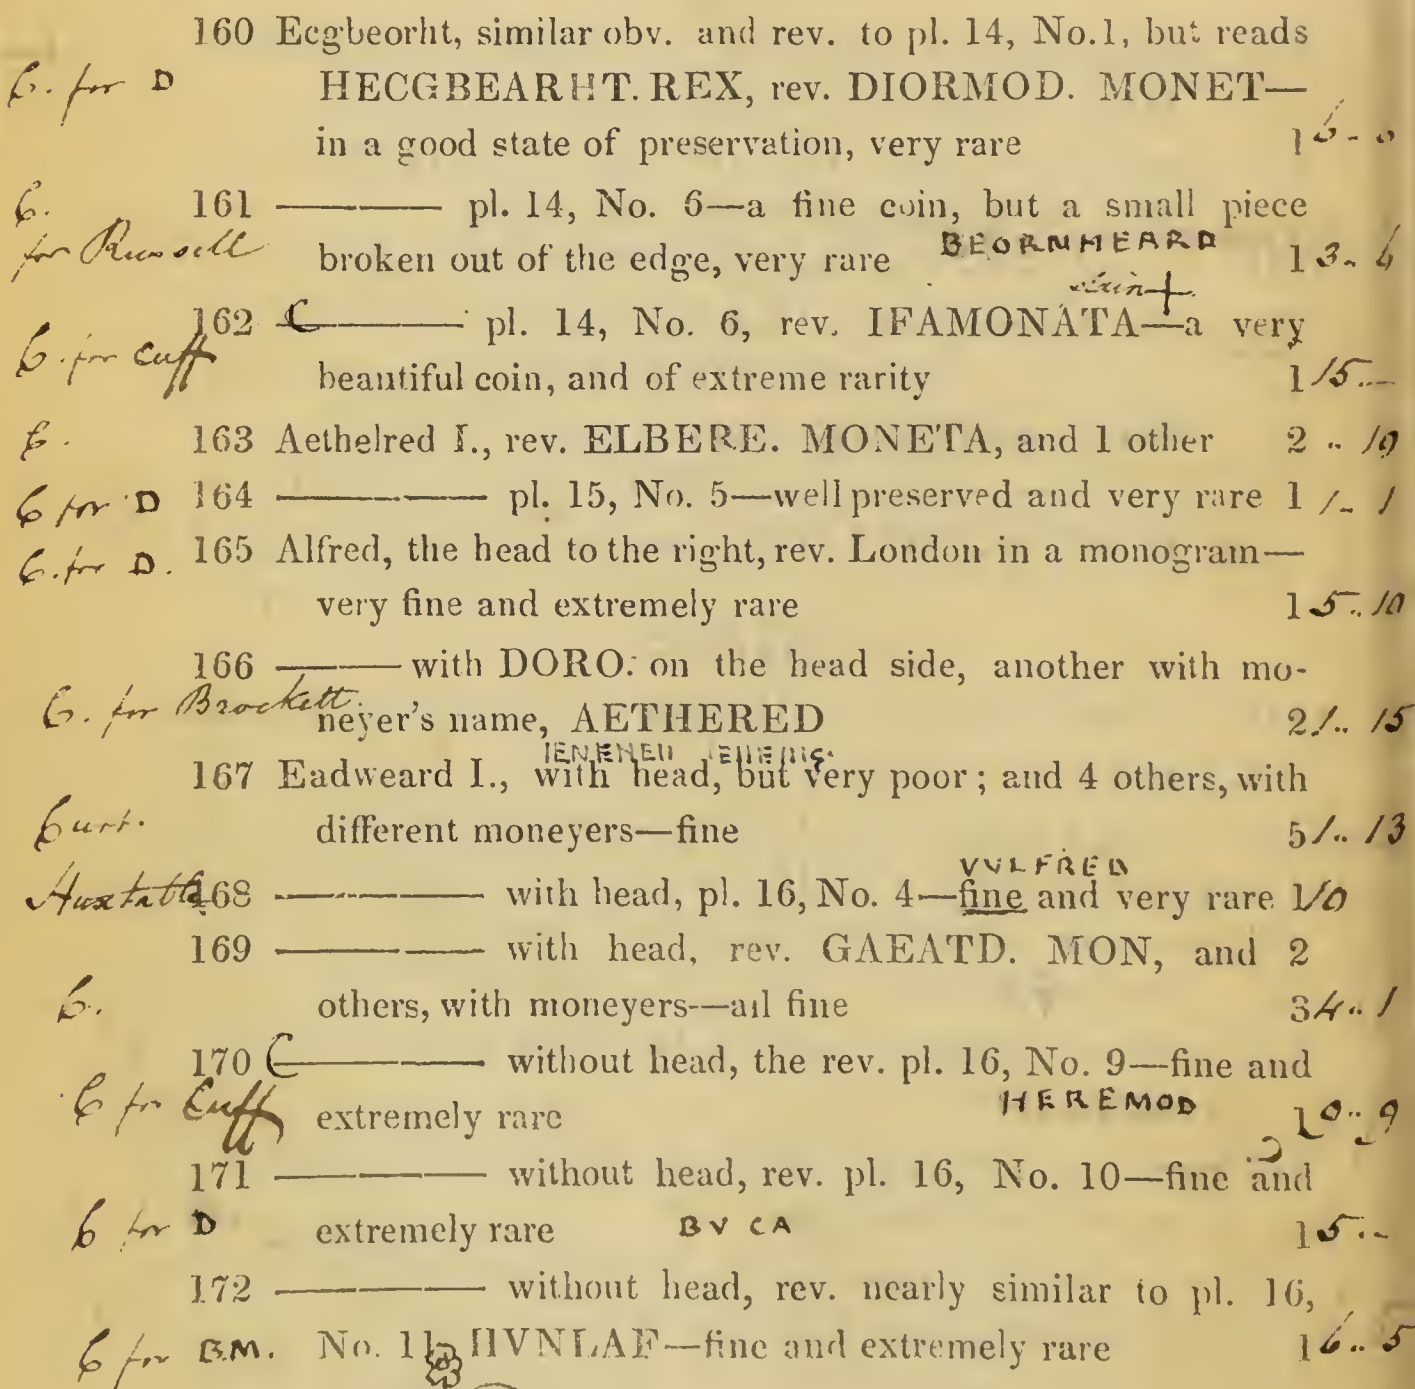 160 Ecgbeorht, similar obv. and rev. to pl. 14, No. 1, but reads
C. for D HECGBEARHT. REX, rev. DIORMOD. MONET—
in a good state of preservation, very rare 1 6 - 0
C. 161 ——— pl. 14, No. 6—a fine coin, but a small piece
for Russell broken out of the edge, very rare BEORNHEARD 1 3 - 4
162 C——— pl. 14, No. 6, rev. IFAMONATA—a very
C. for Cuff beautiful coin, and of extreme rarity 1 15 ..—
C. 163 Aethelred I., rev. ELBERE. MONETA, and 1 other 2 .. 19
C for D 164 ——— pl. 15, No. 5—well preserved and very rare 1 1 - 1
C. for D. 165 Alfred, the head to the right, rev. London in a monogram—
very fine and extremely rare 1 5 .. 10
166 ——— with DORO: on the head side, another with mo-
C. for Brockett neyer's name, AETHERED 2 1 .. 15
167 Eadweard I., with head, but very poor; and 4 others, with
Curt. different moneyers—fine 5 1 .. 13
VVLFRED
Huxtable 168 ——— with head, pl. 16, No. 4—fine and very rare 1
169 ——— with head, rev. GAEATD. MON, and 2
C. others, with moneyers—all fine 3 4 .. 1
170 C——— without head, the rev. pl. 16, No. 9—fine and
C for Cuff extremely rare HEREMOD 1 0 .. 9
171 ——— without head, rev. pl. 16, No. 10—fine and
C for D extremely rare BVCA 1 5 ..-
172 ——— without head, rev. nearly similar to pl. 16,
C for B.M. No. 11, HVNLAF—fine and extremely rare 1 6 .. 5